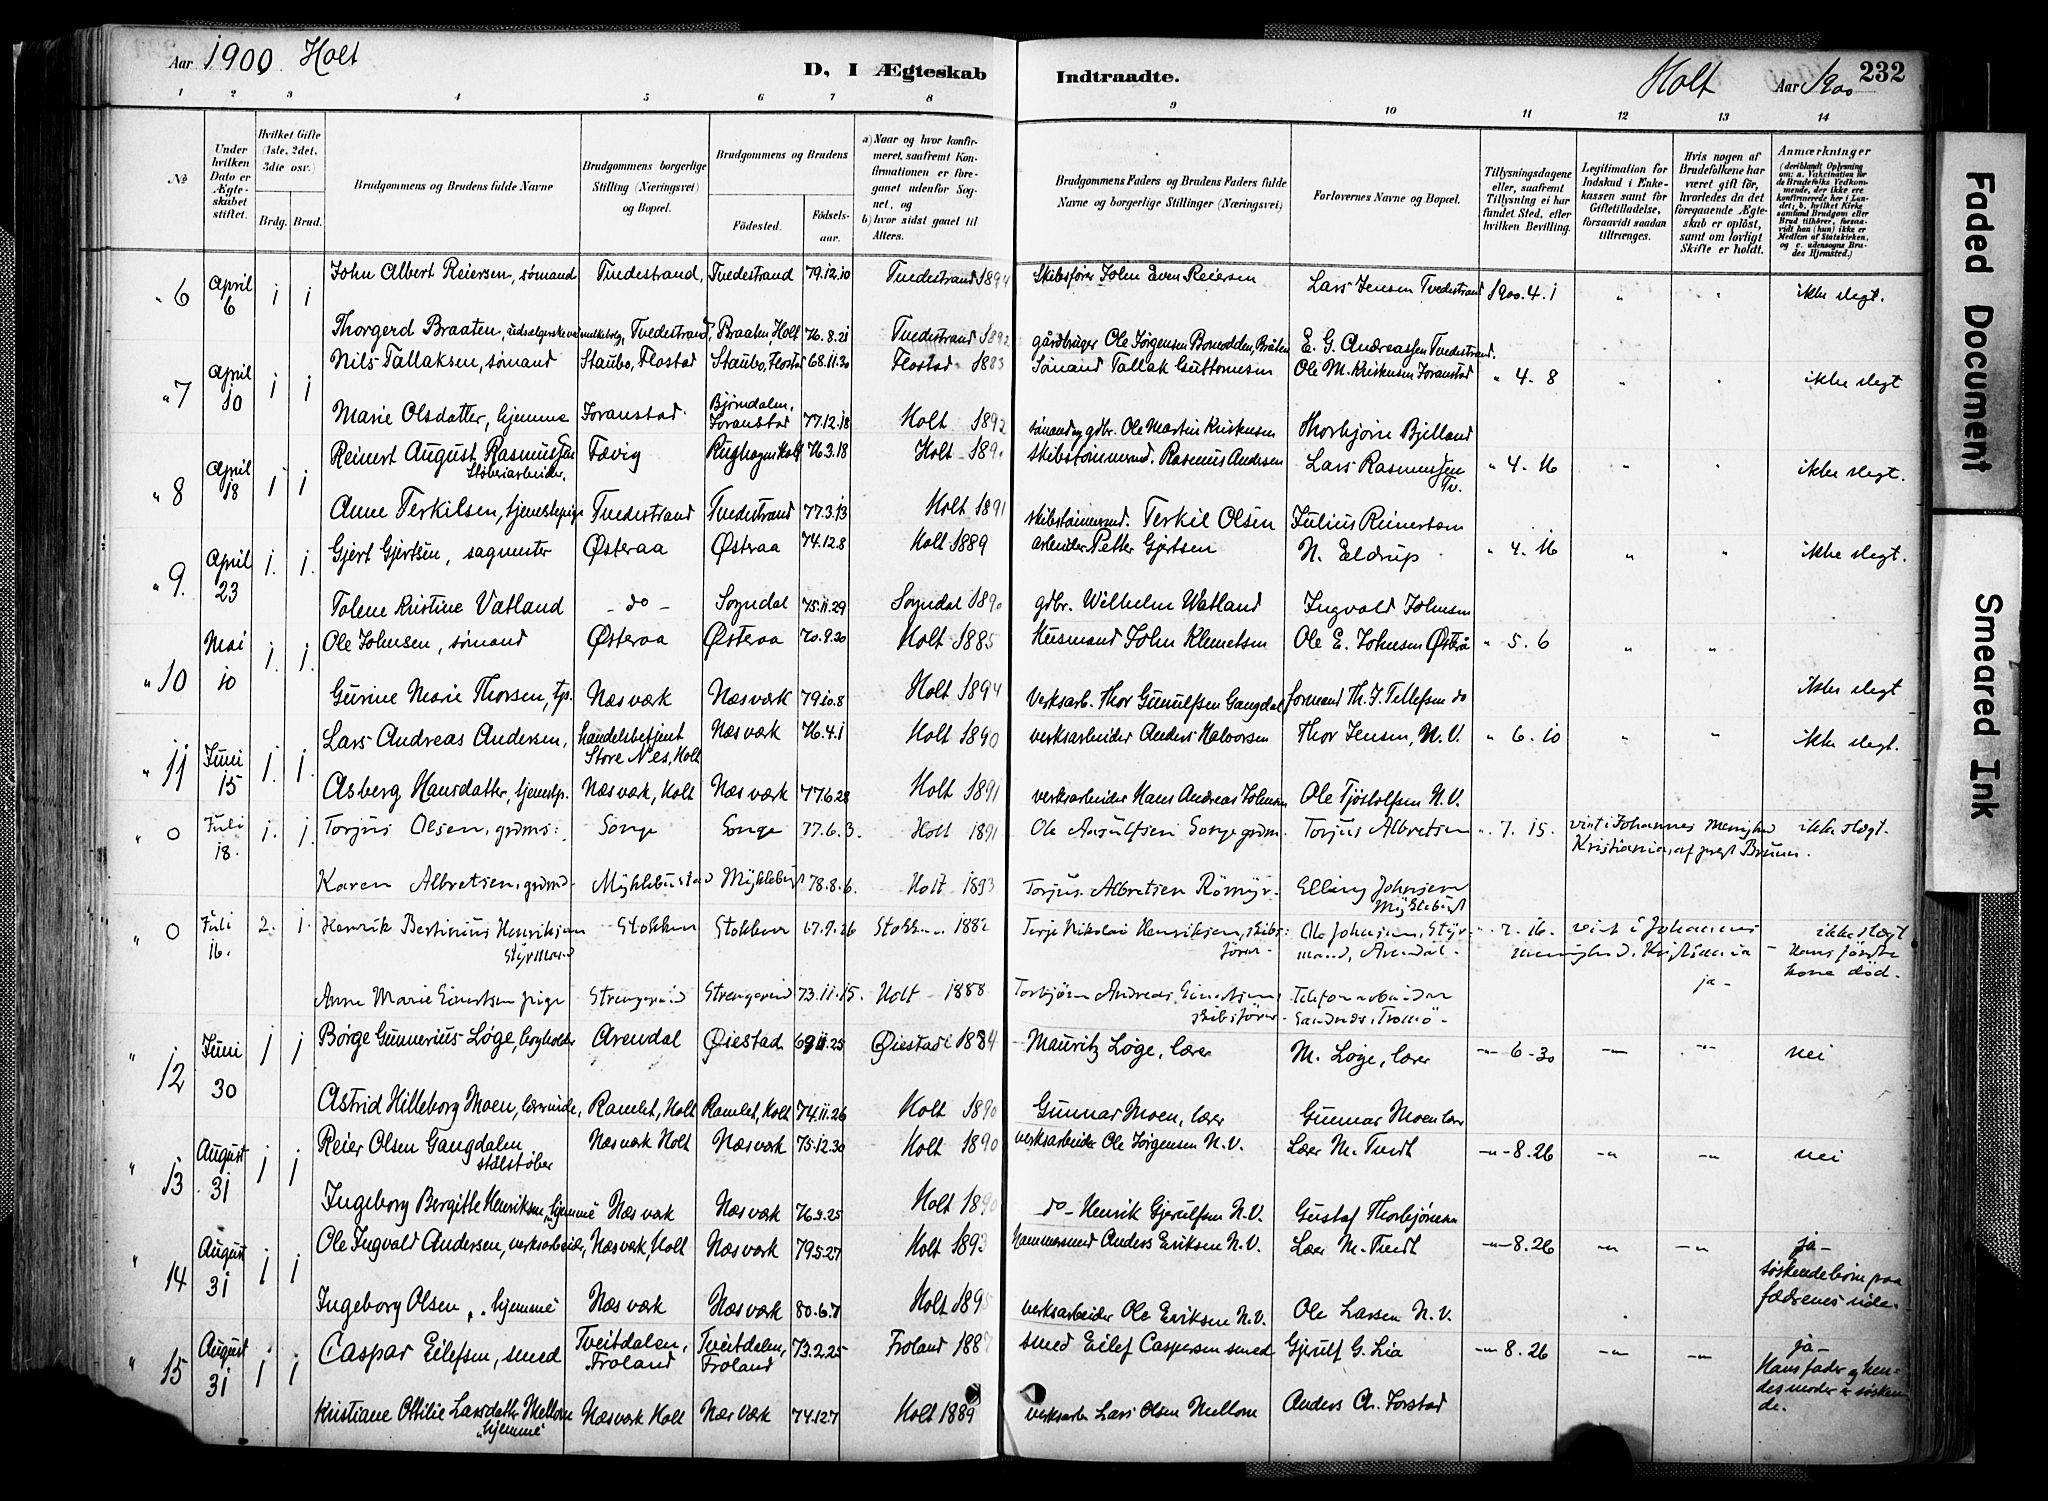 Aar 1900 Holt
D, I Ægteskab Indtraadte.
Holt Aar 1900 232
1 2 3 4 5 6 7 8 9 10 11 12 13 14
№
Under hvilken Dato er Ægteskabet stiftet.
Hvilket Gifte (1ste, 2det, 3die osv.)
Brdg. Brud.
Brudgommens og Brudens fulde Navne
Brudgommens borgerlige Stilling (Næringsvei) og Bopæl.
Brudgommens og Brudens
Fødested. Fødselsaar.
a) Naar og hvor konfirmeret, saafremt Konfirmationen er foregaaet udenfor Sognet, og
b) hvor sidst gaaet til Alters.
Brudgommens Faders og Brudens Faders fulde Navne og borgerlige Stillinger (Næringsvei)
Forlovernes Navne og Bopæl.
Tillysningsdagene eller, saafremt Tillysning ei har fundet Sted, efter hvilken Bevilling.
Legitimation for Indskud i Enkekassen samt for Giftetilladelse, forsaavidt saadan tiltrænges.
Hvis nogen af Brudefolkene har været gift før, hvorledes da det foregaaende Ægteskab er opløst, samt om lovligt Skifte er holdt.
Anmærkninger
(deriblandt Oplysning om: a. Vakcination for de Brudefolks Vedkommende, der ikke ere konfirmerede her i Landet; b. hvilket Kirkesamfund Brudgom eller Brud tilhører, forsaavidt han (hun) ikke er Medlem af Statskirken, og c. udensogns Brudes Hjemsted.)
" 6 April 6 1 1 John Albert Reiersen, sømand Tvedestrand, Tvedestrand 79.12.10 Tvedestrand 1894 Skibsfører John Even Reiersen Lars Jensen Tvedestrand 1900.4.1 " " ikke slegt.
Thorgerd Braaten, Tvedestrand, Braaten, Holt 76.8.21 Tvedestrand 1892 gårdbruger Ole Jørgensen Bråten E. G. Andreassen Tvedestrand.
" 7 April 10 1 1 Nils Tallaksen, sømand Staubo, Flostad Staubo, Flostad 68.11.30 Flostad 1883 Sømand Tallak Guttormsen Ole M. Kristensen Foranstad " 4. 8 " " ikke slegt
Marie Olsdatter, hjemme Foranstad. Bjørndalen, Foranstad 77.12.18 Holt 1892 sømand og gdbr. Ole Martin Kristensen Thorbjørn Bjelland
" 8 April 18 1 1 Reinert August Rasmussen Støberiarbeider. Fævig 76.3.18 Holt 1890 skibstømmermd. Rasmus Andersen Lars Rasmussen Tv. " 4. 16 " " ikke slegt.
Anne Terkilsen, tjenestepige Tvedestrand Tvedestrand 77.3.13 Holt 1891 skibstømmermd. Terkil Olsen Julius Reinertsen
" 9. April 23 1. 1. Gjert Gjertsen, sagmester Østeraa Østeraa 74.12.8 Holt 1889 arbeider Petter Gjertsen N. Eldrup " 4. 16 " " ikke slegt.
Tolene Kristine Vatland - do - Sogndal 75.11.29 Sogndal 1890 gdbr. Wilhelm Watland Ingvald Johnsen
" 10 Mai 10 1. 1. Ole Johnsen, sømand Østeraa Østeraa 70.9.20 Holt 1885 Husmand John Klemetsen Ole E. Johnsen Østerå " 5. 6 " "
Gurine Marie Thorsen, tp. Næsværk Næsværk 79.10.8 Holt 1894 verksarb. Thor Gunulfsen Gangdal formand Th. J. Tellefsen do ikke slegt
" 11 Juni 15 1. 1. Lars Andreas Andersen, handelsbetjent Store Nes, Holt Næsværk 76.4.1 Holt 1890 verksarbeider Anders Halvorsen Thor Jensen, N. V. " 6. 10 " " ikke slegt.
Asberg Hansdatter, tjenestp. Næsværk, Holt Næsværk 77.6.28 Holt 1891 verksarbeider Hans Andreas Johnsen Ole Tjøstolfsen N. V.
" 0 Juli 18. 1. 1. Torjus Olsen, grdms: Songe Songe 77.6.3. Holt 1891 Ole Aasulfsen Songe grdm. Torjus Albretsen " 7. 15. viet i Johannes Menighed Kristiania, af prest Bruun. ikke slægt.
Karen Albretsen, grdmd. Myklebustad Myklebust 78.8.6. Holt 1893 Torjus Albretsen Rømyr. Elling Johnsen Myklebust
" 0 Juli 16. 2. 1. Henrik Bertinius Henriksen Styrmand Stokken Stokken 67.9.26 Stokken 1882 Terje Nikolai Henriksen, skibsfører Ole Johnsen, Styrmand, Arendal. " 7. 16. viet i Johannes menighed, Kristiania ja - ikke slægt - Hans første kone død.
Anne Marie Einertsen pige Strengereid Strengereid 73.11.15. Holt 1888 Torbjørn Andreas Einertsen, skibsfører Telefonarbeider Sandnes, Tromø.
" 12 Juni 30 1 1 Børge Gunnerius Løge, Arendal Øiestad 69.11.25 Øiestad 1884 Mauritz Løge, lærer M. Løge, lærer -"- 6-30 -"- -"- nei
Astrid Hilleborg Moen, lærerinde, Ramlet, Holt Ramlet, Holt 74.11.26 Holt 1890 Gunnar Moen, lærer Gunnar Moen lærer
" 13 August 31 1 1 Reier Olsen Gangdalen stålstøber Næsværk Holt Næsværk 75.12.30 Holt 1890 verksarbeider Ole Jørgensen N. V. Lærer M. Tvedt -"- 8.26 -"- -"- nei
Ingeborg Bergitte Henriksen, hjemme Næsværk Næsværk 76.9.25 Holt 1890 do - Henrik Gjerulfsen N. V. Gustaf Thorbjørnsen
" 14 August 31 1 1 Ole Ingvald Andersen, verksarbeider, Næsværk, Holt Næsværk 79.5.27 Holt 1893 Hammersmed Anders Eriksen N. V. Lærer M. Tvedt -"- 8.26 -"- -"- ja - søskendebørn paa fædrenes side.
Ingeborg Olsen, "hjemme" Næsværk Næsværk 80.6.7 Holt 1895 verksarbeider Ole Eriksen N. V. Ole Larsen N. V.
" 15 August 31 1 1 Caspar Eilefsen, smed Tveitdalen, Froland Tveitdalen, Froland 73.2.25 Froland 1887 smed Eilef Caspersen smed Gjerulf G. Lia -"- 8.26 -"- -"- ja - Hans fader og hendes moder er søskende.
Kristiane Ottilie Larsdatter Mellom "hjemme" Næsværk Holt Næsværk 74.12.7 Holt 1889 verksarb. Lars Olsen Mellom Anders A. Forstad
Faded Document
Smeared Ink